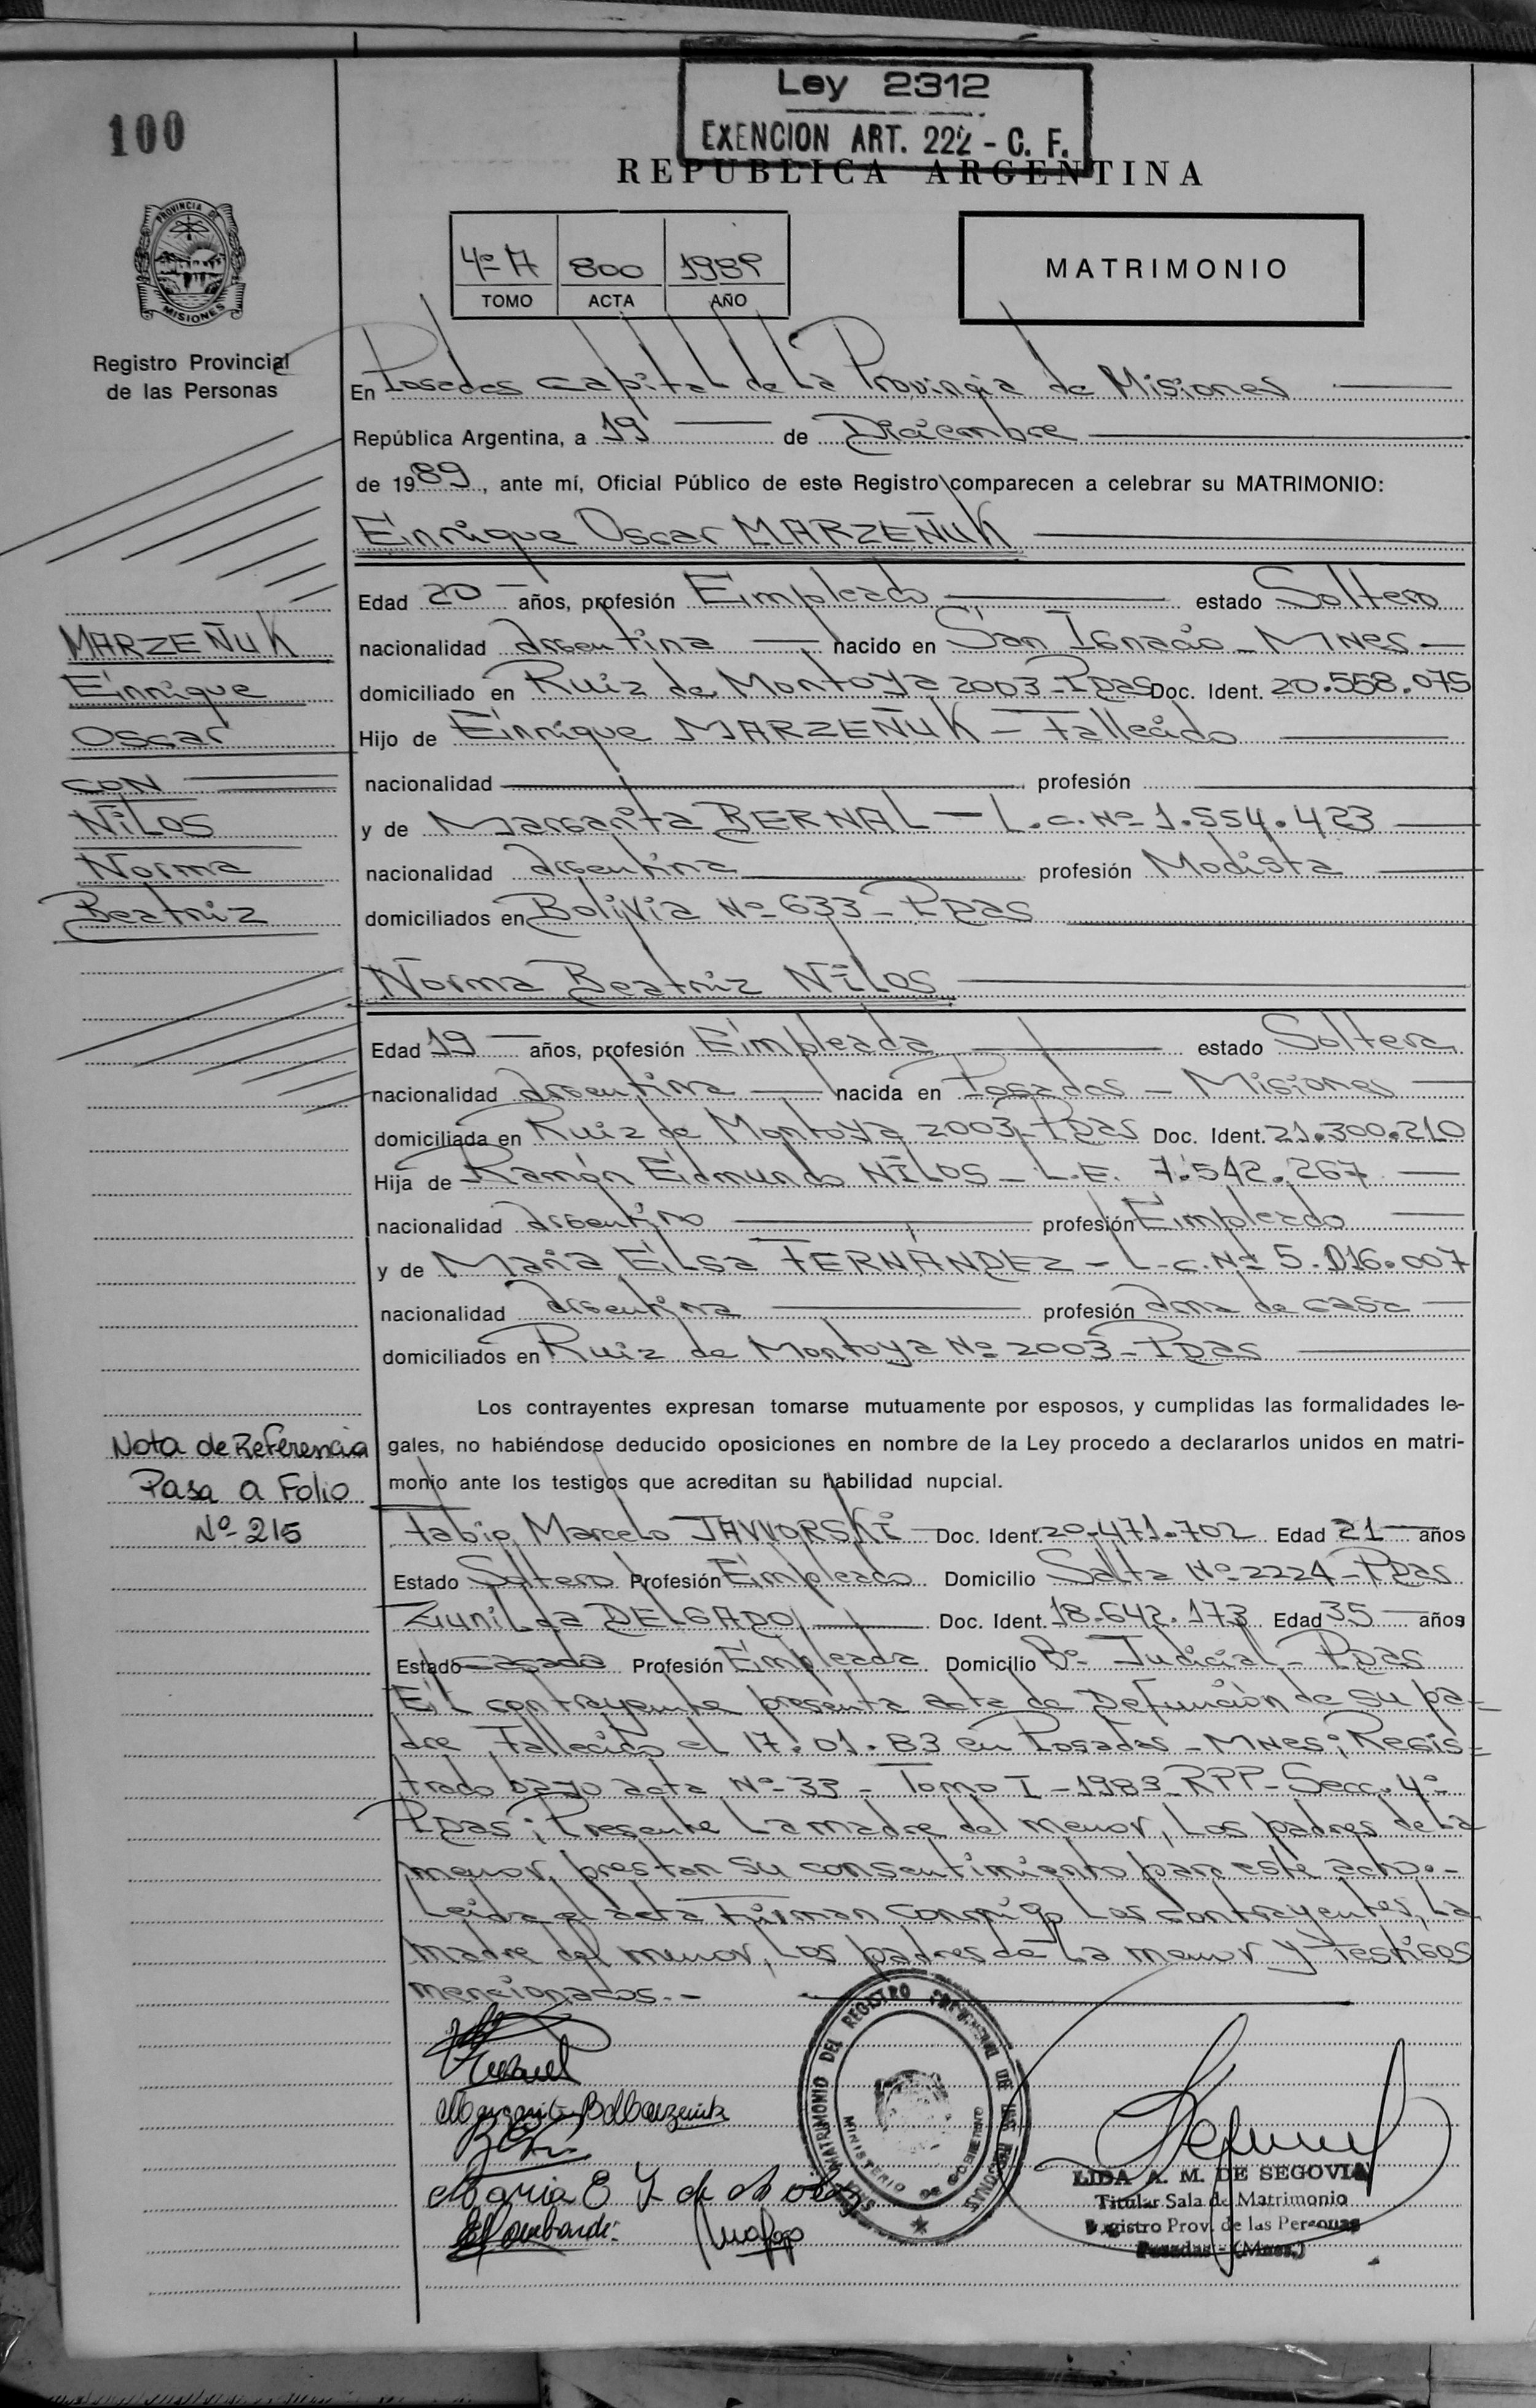 Ley 2312
EXENCION ART. 222 - C. F.
100
REPUBLICA ARGENTINA
PROVINCIA DE
MISIONES
4º A 800 1989
TOMO ACTA AÑO
MATRIMONIO
Registro Provincial
de las Personas
En Posadas capital de la Provincia de Misiones
República Argentina, a 19 de Diciembre
de 1989, ante mí, Oficial Público de este Registro comparecen a celebrar su MATRIMONIO:
Enrique Oscar MARZEÑUK
Edad 20 años, profesión Empleado estado Soltero
MARZEÑUK
nacionalidad argentina nacido en San Ignacio - Mnes -
Enrique
domiciliado en Ruiz de Montoya 2003 - Pdas Doc. Ident. 20.558.075
Oscar
Hijo de Enrique MARZEÑUK - Fallecido
CON
nacionalidad profesión
NiLOS
y de Margarita BERNAL - L.c. Nº 1.554.423
Norma
nacionalidad argentina profesión Modista
Beatriz
domiciliados en Bolivia Nº 633 - Pdas
Norma Beatriz NiLOS
Edad 19 años, profesión Empleada estado Soltera
nacionalidad argentina nacida en Posadas - Misiones
domiciliada en Ruiz de Montoya 2003 - Pdas Doc. Ident. 21.300.210
Hija de Ramón Edmundo NiLOS - L.E. 7.542.267
nacionalidad argentino profesión Empleado
y de Maria Elsa FERNANDEZ - L.c. Nº 5.016.007
nacionalidad argentina profesión ama de casa
domiciliados en Ruiz de Montoya Nº 2003 - Pdas
Los contrayentes expresan tomarse mutuamente por esposos, y cumplidas las formalidades le-
gales, no habiéndose deducido oposiciones en nombre de la Ley procedo a declararlos unidos en matri-
monio ante los testigos que acreditan su habilidad nupcial.
Nota de Referencia
Pasa a Folio
Nº 215
Fabio Marcelo JAVVORSKi Doc. Ident. 20.471.702 Edad 21 años
Estado Soltero Profesión Empleado Domicilio Salta Nº 2224 - Pdas
Zunilda DELGADO Doc. Ident. 18.642.173 Edad 35 años
Estado casada Profesión Empleada Domicilio Bº Judicial - Pdas
El contrayente presenta acta de Defunción de su pa-
dre, Fallecido el 17.01.83 en Posadas - Mnes; Regis-
trado bajo acta Nº 39 - Tomo I - 1983 - RPP - Secc. 4º -
Pdas; Presente La madre del menor, Los padres de La
menor, prestan su consentimiento para este acto. -
Leida el acta Firman conmigo Los contrayentes, La
madre del menor, Los padres de La menor y Testigos
mencionados. -
MATRIMONIO DEL REGISTRO PROVINCIAL DE LAS PERSONAS
MINISTERIO DE GOBIERNO
LIDA A. M. DE SEGOVIA
Titular Sala de Matrimonio
Registro Prov. de las Personas
Posadas - (Mnes.)